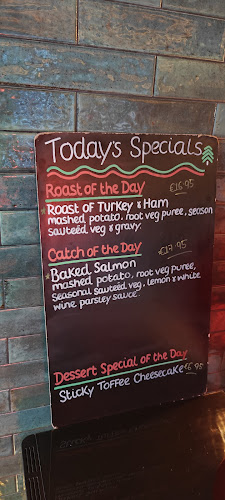 Today's Specials
Roast of the Day €16.95
Roast of Turkey & Ham
mashed potato, root veg puree, season
sauteéd veg & gravy.
Catch of the Day €17.95
Baked Salmon
mashed potato, root veg puree,
seasonal sauteéd veg, lemon & white
wine parsley sauce.
Dessert Special of the Day
Sticky Toffee Cheesecake €6.95